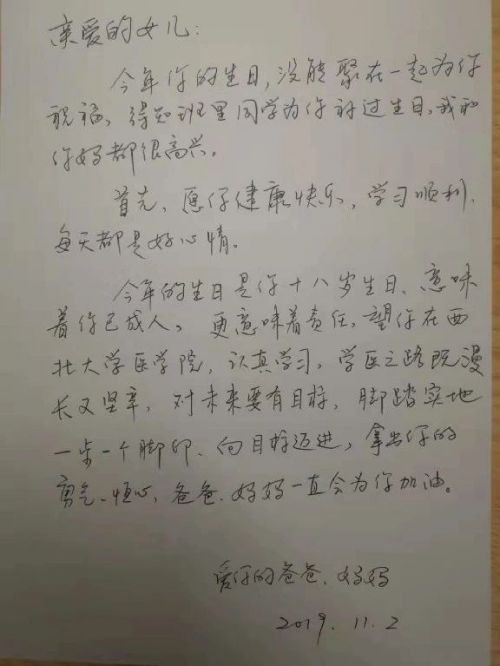 亲爱的女儿：
今年你的生日，没能聚在一起为你
祝福，得知班里同学为你过生日，我和
你妈都很高兴。
首先，愿你健康快乐，学习顺利，
每天都是好心情。
今年的生日是你十八岁生日、意味
着你已成人，更意味着责任，望你在西
北大学医学院，认真学习，学医之路既漫
长又坚辛，对未来要有目标，脚踏实地
一步一个脚印、向目标迈进，拿出你的
勇气、恒心，爸爸、妈妈一直会为你加油。
爱你的爸爸、妈妈
2019.11.2